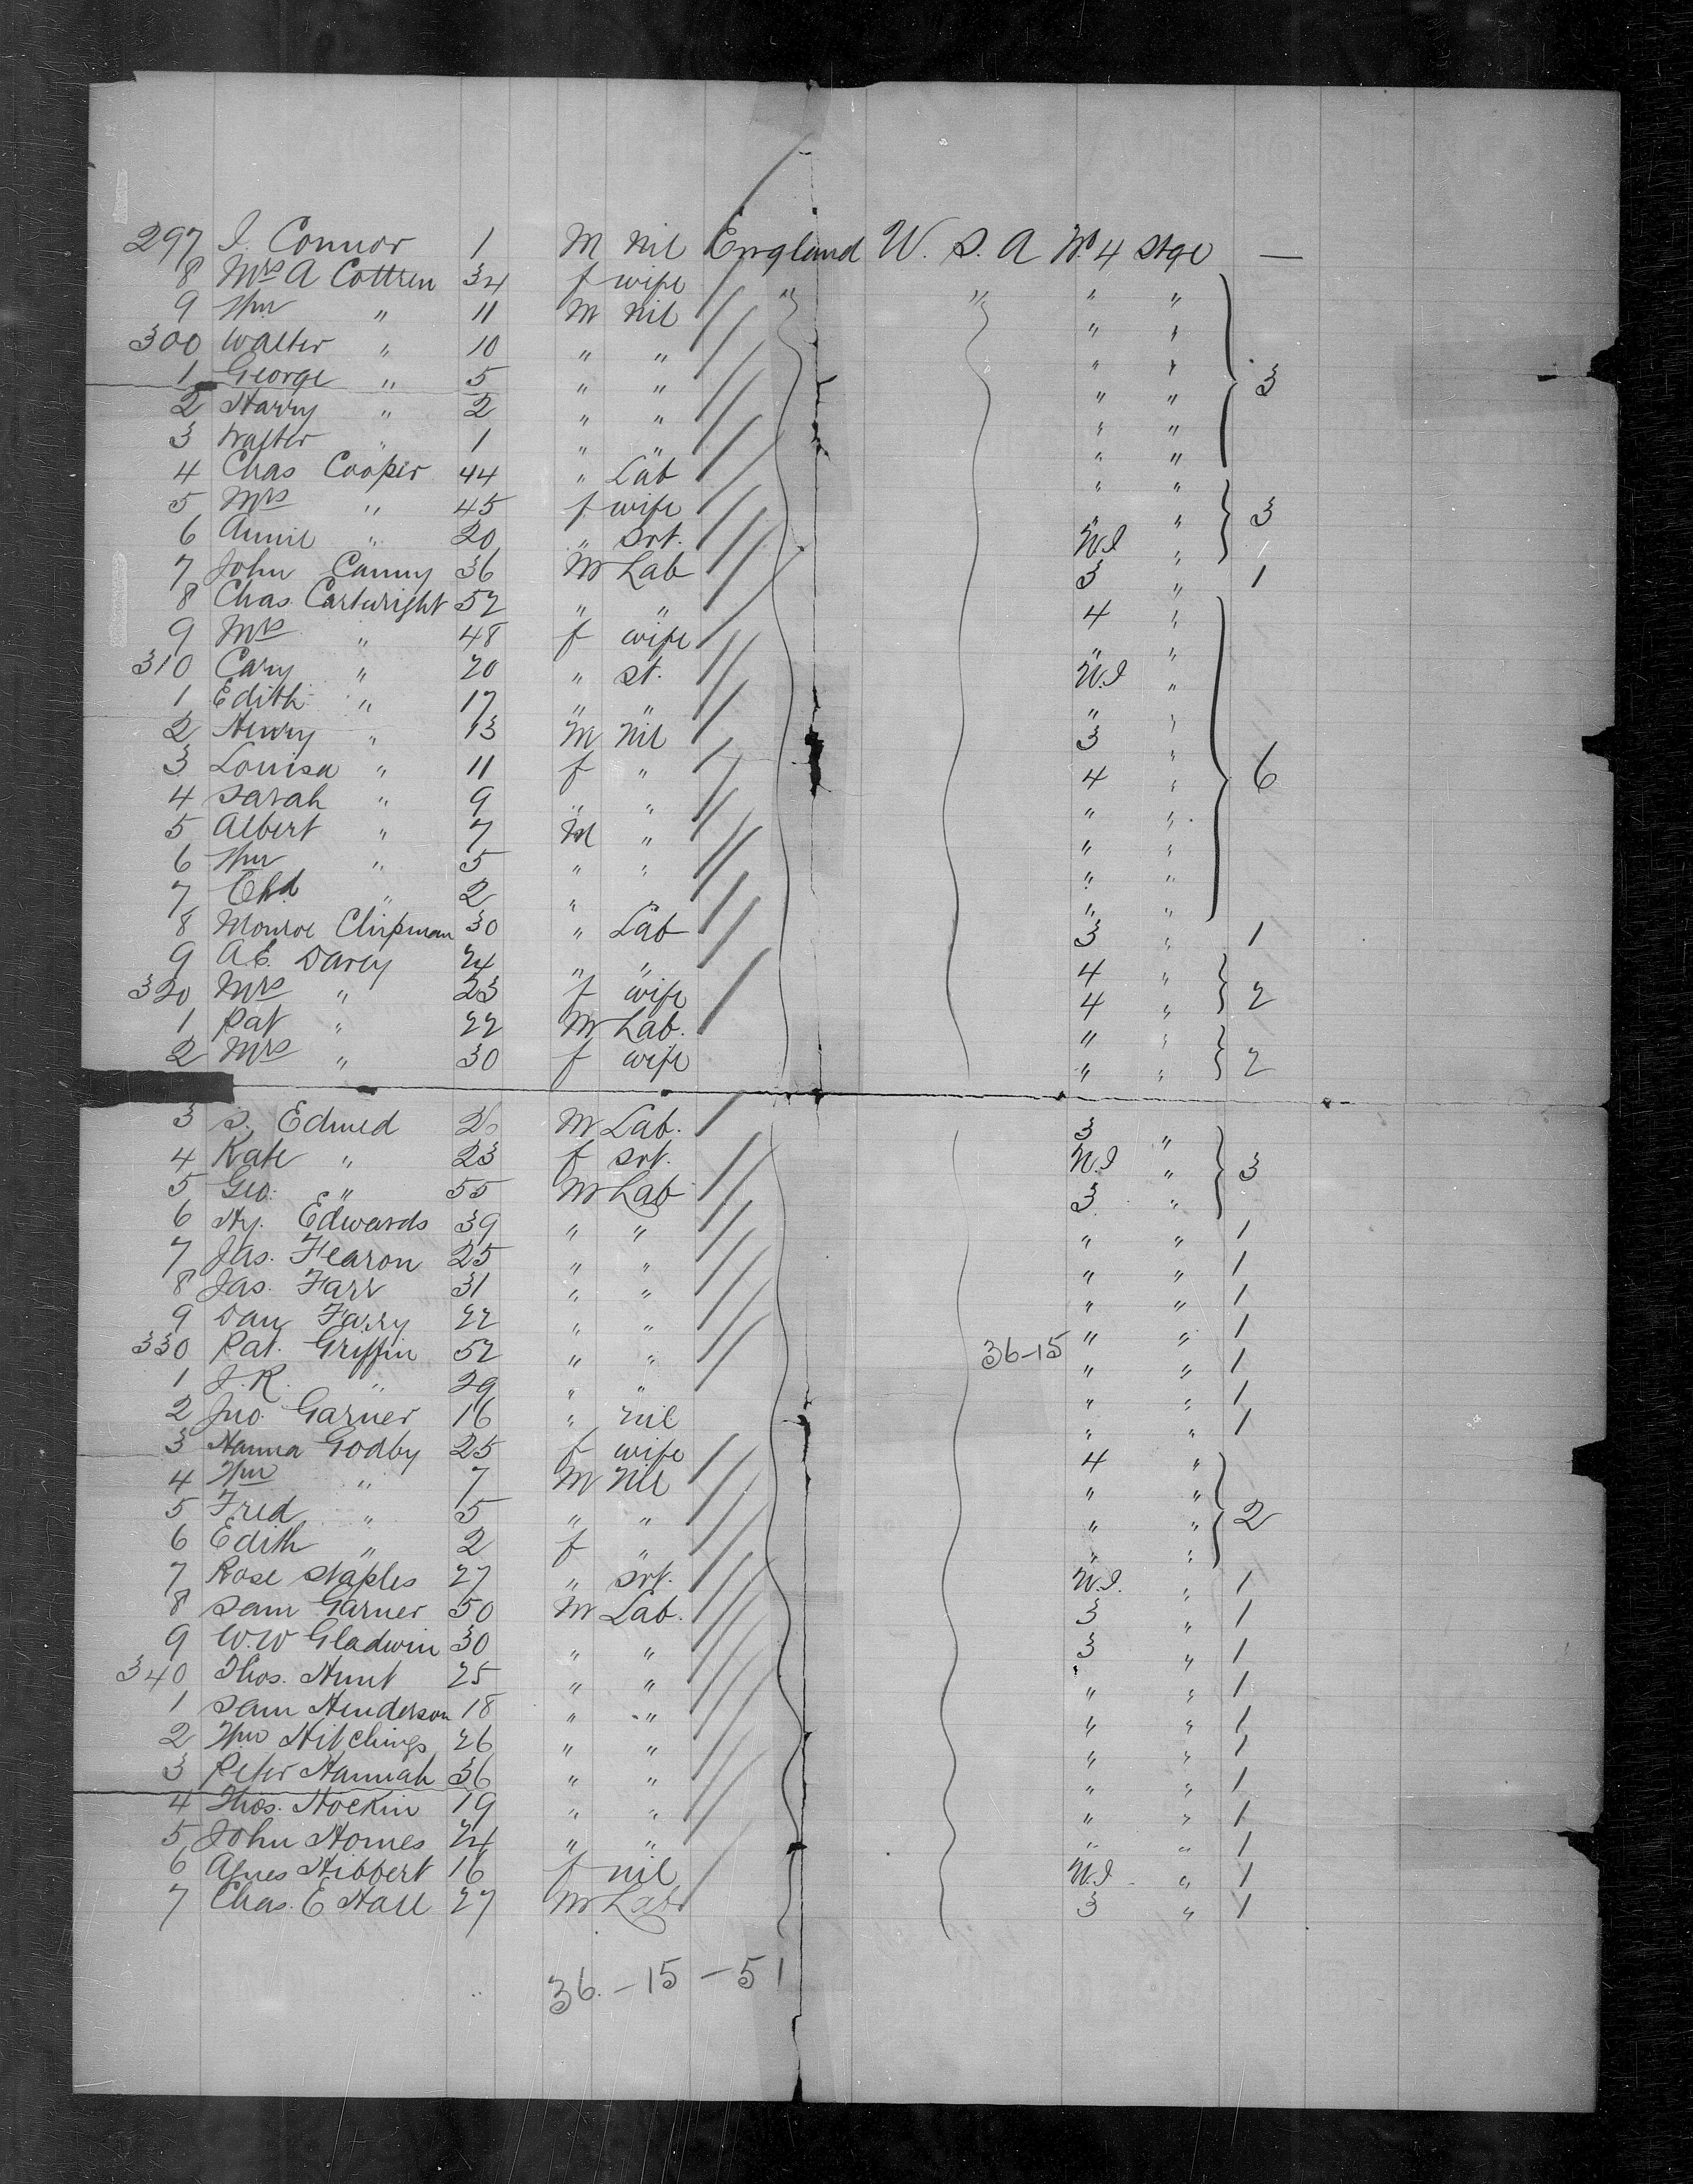 297 J. Connor 1 M nil England U. S. A No. 4 Stge —
8 Mrs A Cottren 34 f wife " " " "
9 Wm " 11 M nil " "
300 Walter " 10 " " " "
1 George " 5 " " " " 3
2 Harry " 2 " " " "
3 Walter " 1 " " " "
4 Chas Cooper 44 " Lab " "
5 Mrs " 45 f wife " " 3
6 Annie " 20 " Srt. No.1 "
7 John Canny 36 M Lab 3 " 1
8 Chas. Cartwright 52 " " 4 "
9 Mrs " 48 f wife " "
310 Cary " 20 " st. No.1 "
1 Edith " 17 " " " "
2 Henry " 13 M Nil 3 "
3 Louisa " 11 f " 4 " 6
4 Sarah " 9 " " " "
5 Albert " 7 M " " "
6 Wm " 5 " " " "
7 Chd " 2 " " " "
8 Monroe Chipman 30 " Lab 3 " 1
9 A.E. Darcy 24 " " 4 "
320 Mrs " 23 f wife 4 " 2
1 Pat " 22 M Lab. " "
2 Mrs " 30 f wife " " 2
3 S. Edmed M Lab. 3 "
4 Kate " 23 f Srt. No.1 " 3
5 Geo. " 55 M Lab 3 "
6 Hy. Edwards 39 " " " " 1
7 Jas. Fearon 25 " " " " 1
8 Jas. Farr 31 " " " " 1
9 Dan Farry 22 " " " " 1
330 Pat. Griffin 52 " " 36-15 " " 1
1 J.R. " 29 " " " " 1
2 Jno. Garner 16 " nil " " 1
3 Hanna Godby 25 f wife 4 "
4 Wm " 7 M Nil " "
5 Fred " 5 " " " " 2
6 Edith " 2 f " " "
7 Rose Staples 27 " Srt. No.1. " 1
8 Sam Garner 50 M Lab. 3 " 1
9 W.W Gladwin 30 " " 3 " 1
340 Thos. Hunt 25 " " " " 1
1 Sam Henderson 18 " " " " 1
2 Wm Hitchings 26 " " " " 1
3 Peter Hannah 36 " " " " 1
4 Thos. Hockin 19 " " " " 1
5 John Homes 24 " " " " 1
6 Agnes Hibbert 16 f nil No.1 " 1
7 Chas. E Hall 27 M Lab 3 " 1
36.-15-51